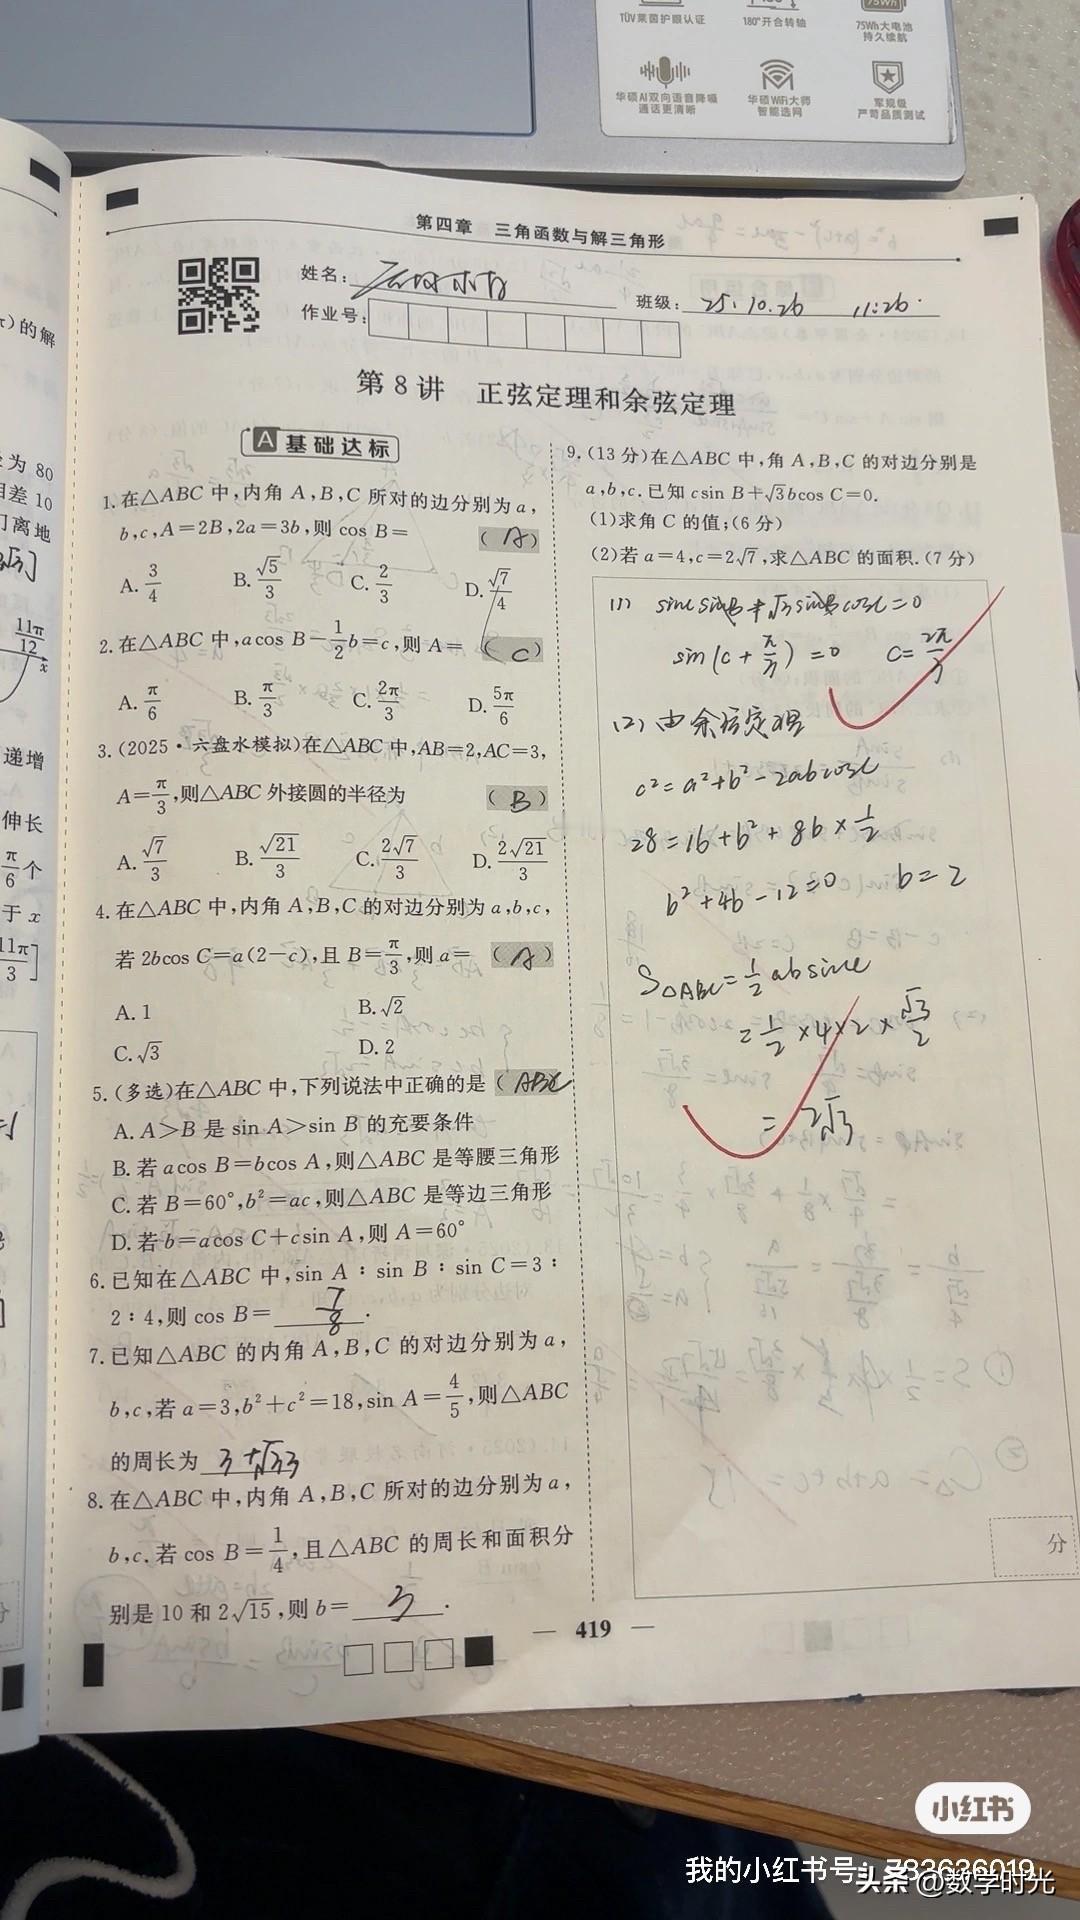 TÜV莱茵护眼认证
180°开合转轴
75Wh
75Wh大电池
持久续航
华硕AI双向语音降噪
通话更清晰
华硕WiFi大师
智能选网
军规级
严苛品质测试
第四章 三角函数与解三角形
姓名:
班级: 25.10.26 11:26
作业号:
第8讲 正弦定理和余弦定理
A 基础达标
1.在△ABC中,内角A,B,C所对的边分别为a,
b,c,A=2B,2a=3b,则cos B= (A)
A.3/4 B.√5/3 C.2/3 D.√7/4
2.在△ABC中,acos B-1/2b=c,则A= (C)
A.π/6 B.π/3 C.2π/3 D.5π/6
3.(2025·六盘水模拟)在△ABC中,AB=2,AC=3,
A=π/3,则△ABC外接圆的半径为 (B)
A.√7/3 B.√21/3 C.2√7/3 D.2√21/3
4.在△ABC中,内角A,B,C的对边分别为a,b,c,
若2bcos C=a(2-c),且B=π/3,则a= (A)
A.1 B.√2
C.√3 D.2
5.(多选)在△ABC中,下列说法中正确的是(ABC
A.A>B是sin A>sin B的充要条件
B.若acos B=bcos A,则△ABC是等腰三角形
C.若B=60°,b²=ac,则△ABC是等边三角形
D.若b=acos C+csin A,则A=60°
6.已知在△ABC中,sin A∶sin B∶sin C=3∶
2∶4,则cos B= 7/8 .
7.已知△ABC的内角A,B,C的对边分别为a,
b,c,若a=3,b²+c²=18,sin A=4/5,则△ABC
的周长为 3+√33
8.在△ABC中,内角A,B,C所对的边分别为a,
b,c.若cos B=1/4,且△ABC的周长和面积分
别是10和2√15,则b= 3 .
9.(13分)在△ABC中,角A,B,C的对边分别是
a,b,c.已知csin B+√3bcos C=0.
(1)求角C的值;(6分)
(2)若a=4,c=2√7,求△ABC的面积.(7分)
(1) sinCsinB+√3sinBcosC=0
sin(C+π/3)=0 C=2π/3
(2)由余弦定理
c²=a²+b²-2abcosC
28=16+b²+8b×1/2
b²+4b-12=0 b=2
S△ABC=1/2absinC
=1/2×4×2×√3/2
=2√3
分
— 419 —
π)的解
为80
相差10
门离地
11π/12
x
递增
伸长
π/6个
于x
11π/3]
小红书
我的小红书号:783636019
头条 @数学时光